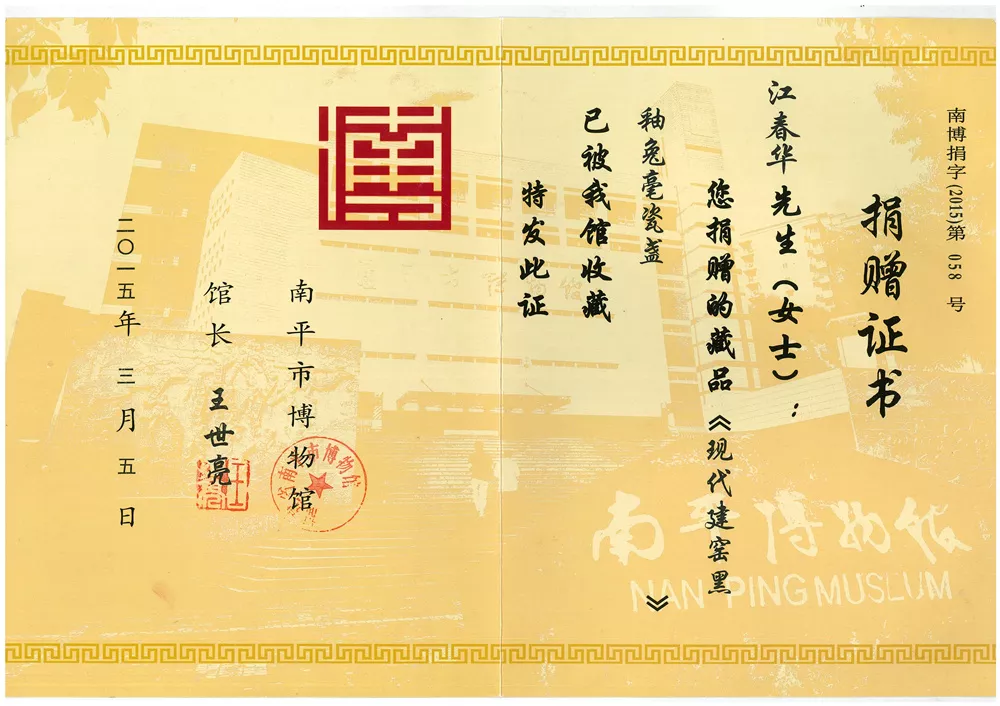 南博捐字(2015)第 058 号
捐赠证书
江春华先生(女士):
您捐赠的藏品《现代建窑黑
釉兔毫瓷盏 》
已被我馆收藏
特发此证
南平市博物馆
馆长 王世亮
二〇一五年 三月 五日
南平博物馆
NAN PING MUSEUM